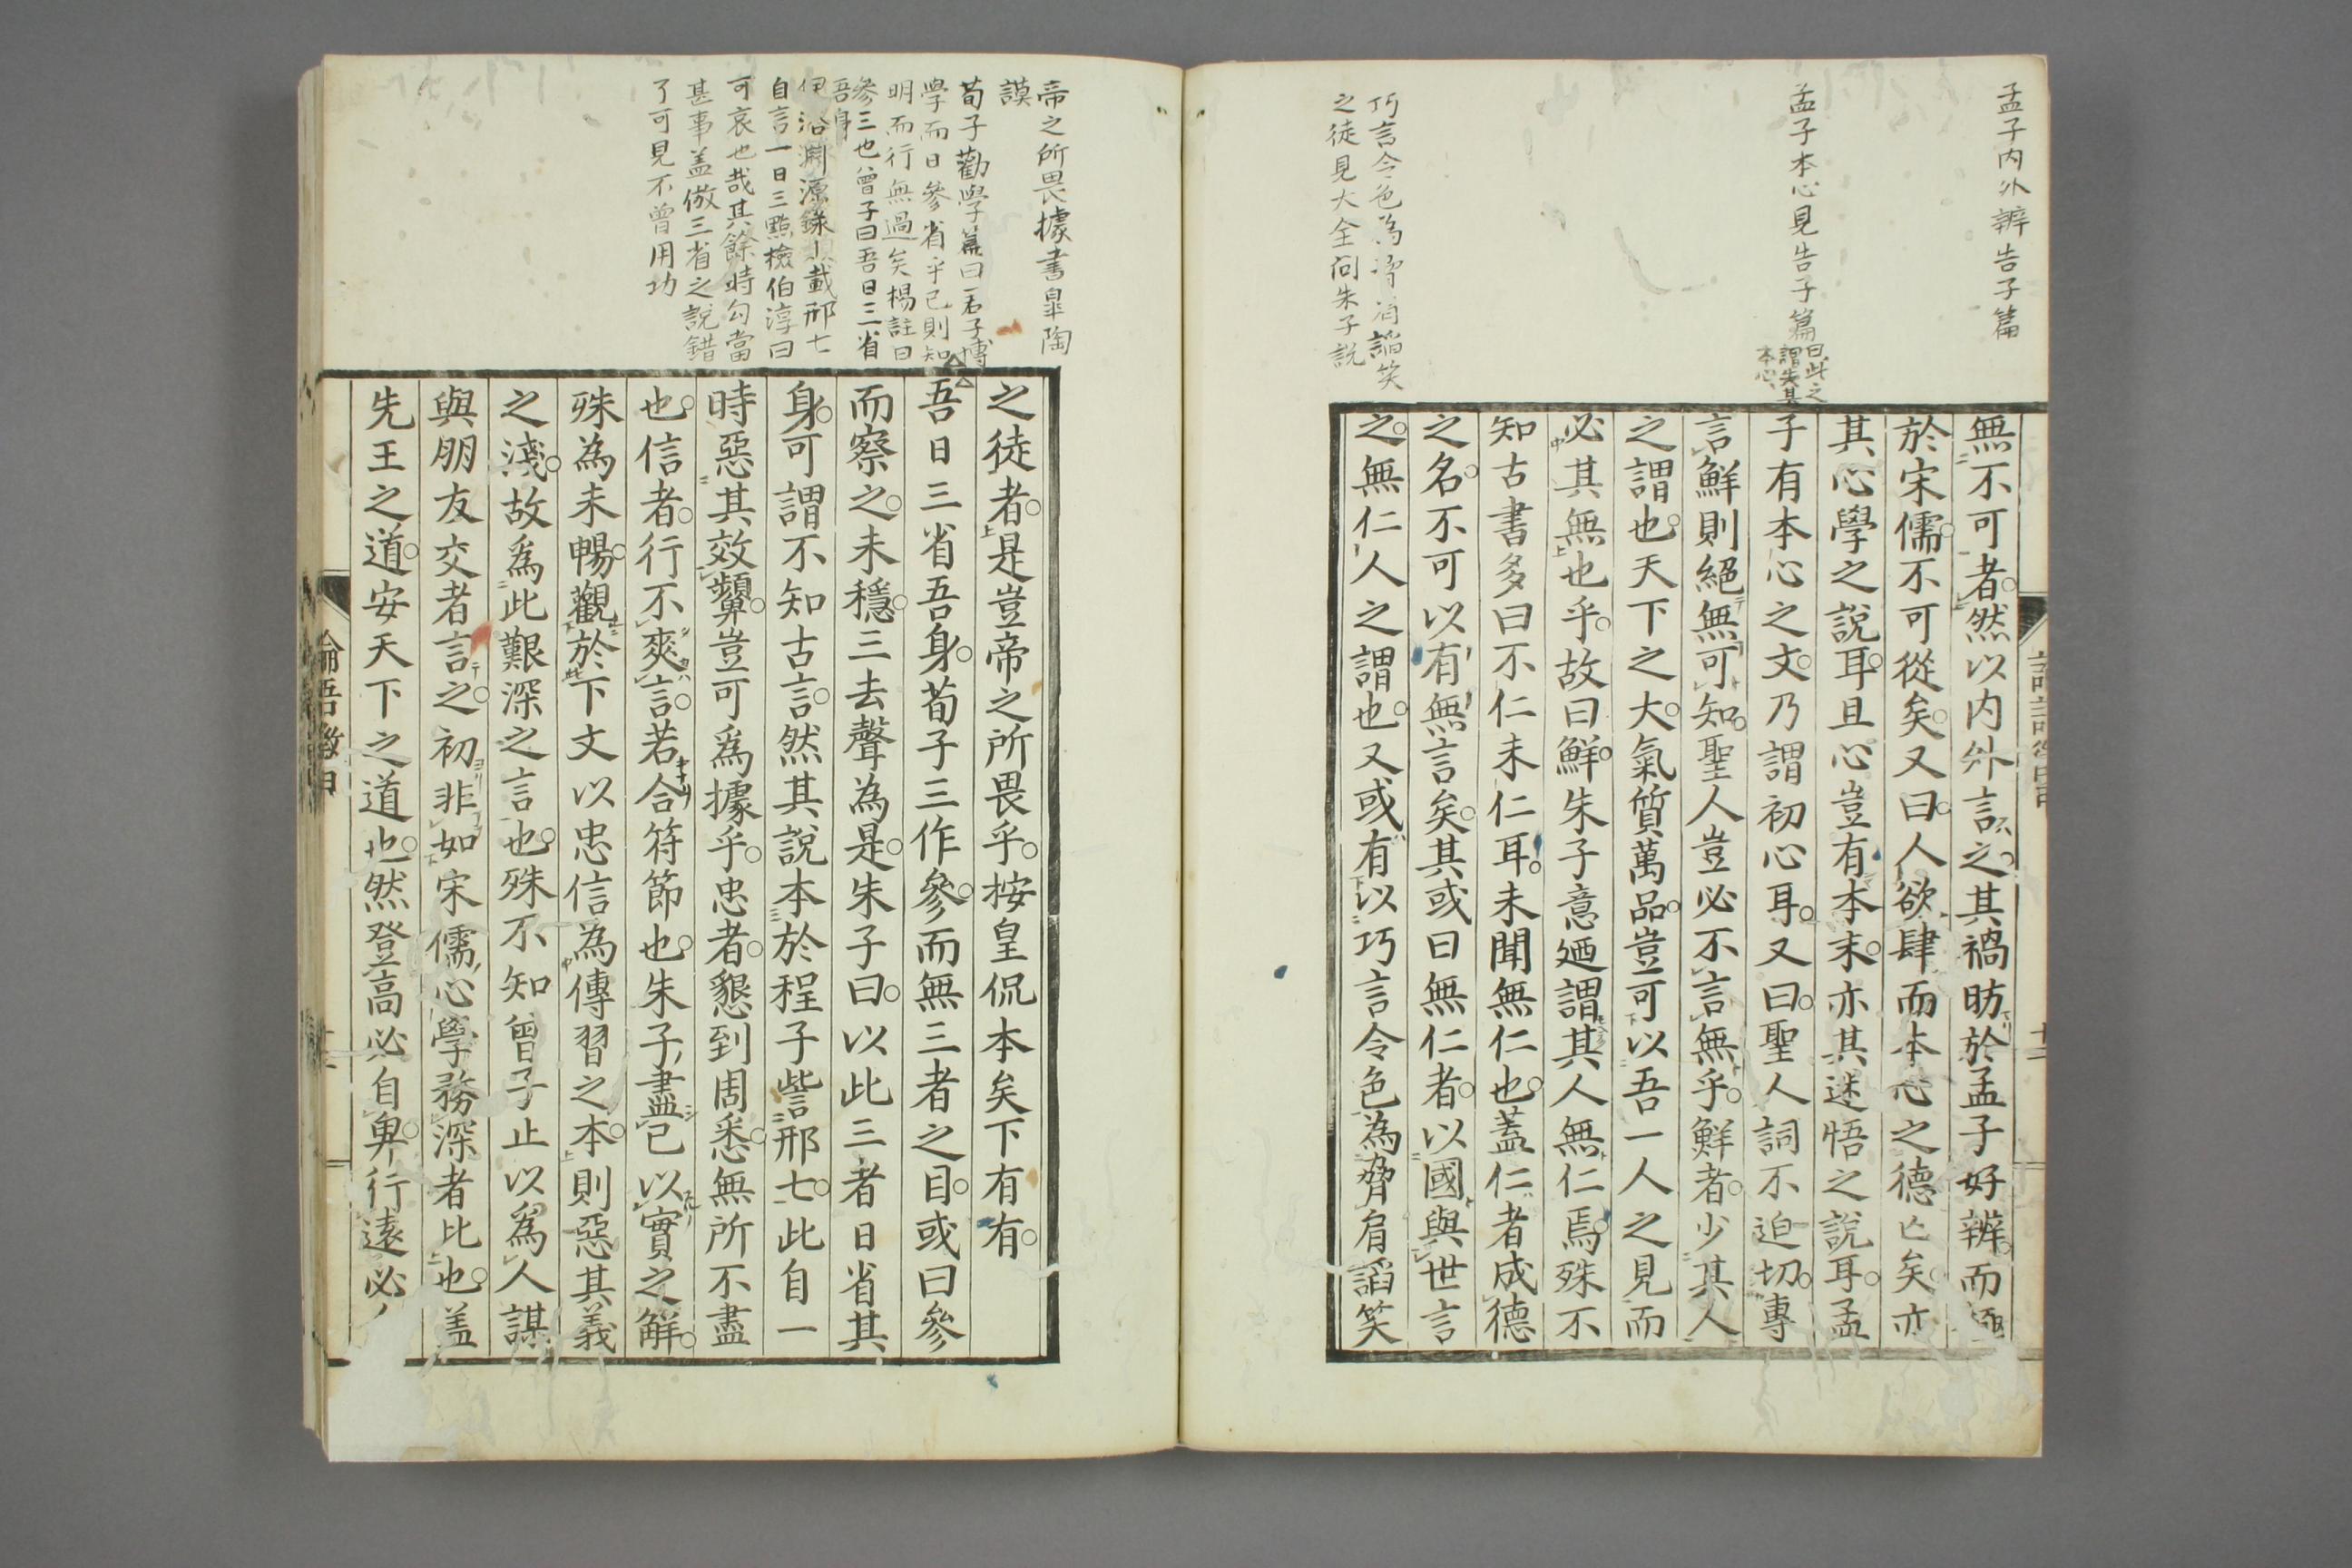 孟子内外辨告子篇
孟子本心見告子篇曰此之
謂失其
本心
巧言令色為脅肩諂笑
之徒見大全問朱子說
無不可者然以内外言之其禍昉於孟子好辨而極
於宋儒不可從矣又曰人欲肆而本心之德亡矣亦
其心學之說耳且心豈有本末亦其迷悟之說耳孟
子有本心之文乃謂初心耳又曰聖人詞不迫切專
言鮮則絕無可知聖人豈必不言無乎鮮者少其人
之謂也天下之大氣質萬品豈可以吾一人之見而
必其無也乎故曰鮮朱子意廼謂其人無仁焉殊不
知古書多曰不仁未仁耳未聞無仁也蓋仁者成德
之名不可以有無言矣其或曰無仁者以國與世言
之無仁人之謂也又或有以巧言令色為脅肩諂笑
帝之所畏據書皐陶
謨
荀子勸學篇曰君子博
學而日參省乎己則知
明而行無過矣楊註曰
參三也曾子曰吾日三省
吾身
伊洛淵源錄載邢七
自言一日三點檢伯淳曰
可哀也哉其餘時勾當
甚事盖倣三省之說錯
了可見不曾用功
之徒者是豈帝之所畏乎桉皇侃本矣下有有
吾日三省吾身荀子三作參而無三者之目或曰參
而察之未穩三去聲為是朱子曰以此三者日省其
身可謂不知古言然其說本於程子訾邢七此自一
時惡其效顰豈可爲據乎忠者懇到周悉無所不盡
也信者行不爽言若合符節也朱子盡己以實之解
殊為未暢觀於下文以忠信為傳習之本則惡其義
之淺故爲此艱深之言也殊不知曾子止以爲人謀
與朋友交者言之初非如宋儒心學務深者比也盖
先王之道安天下之道也然登高必自卑行遠必
論語徵甲